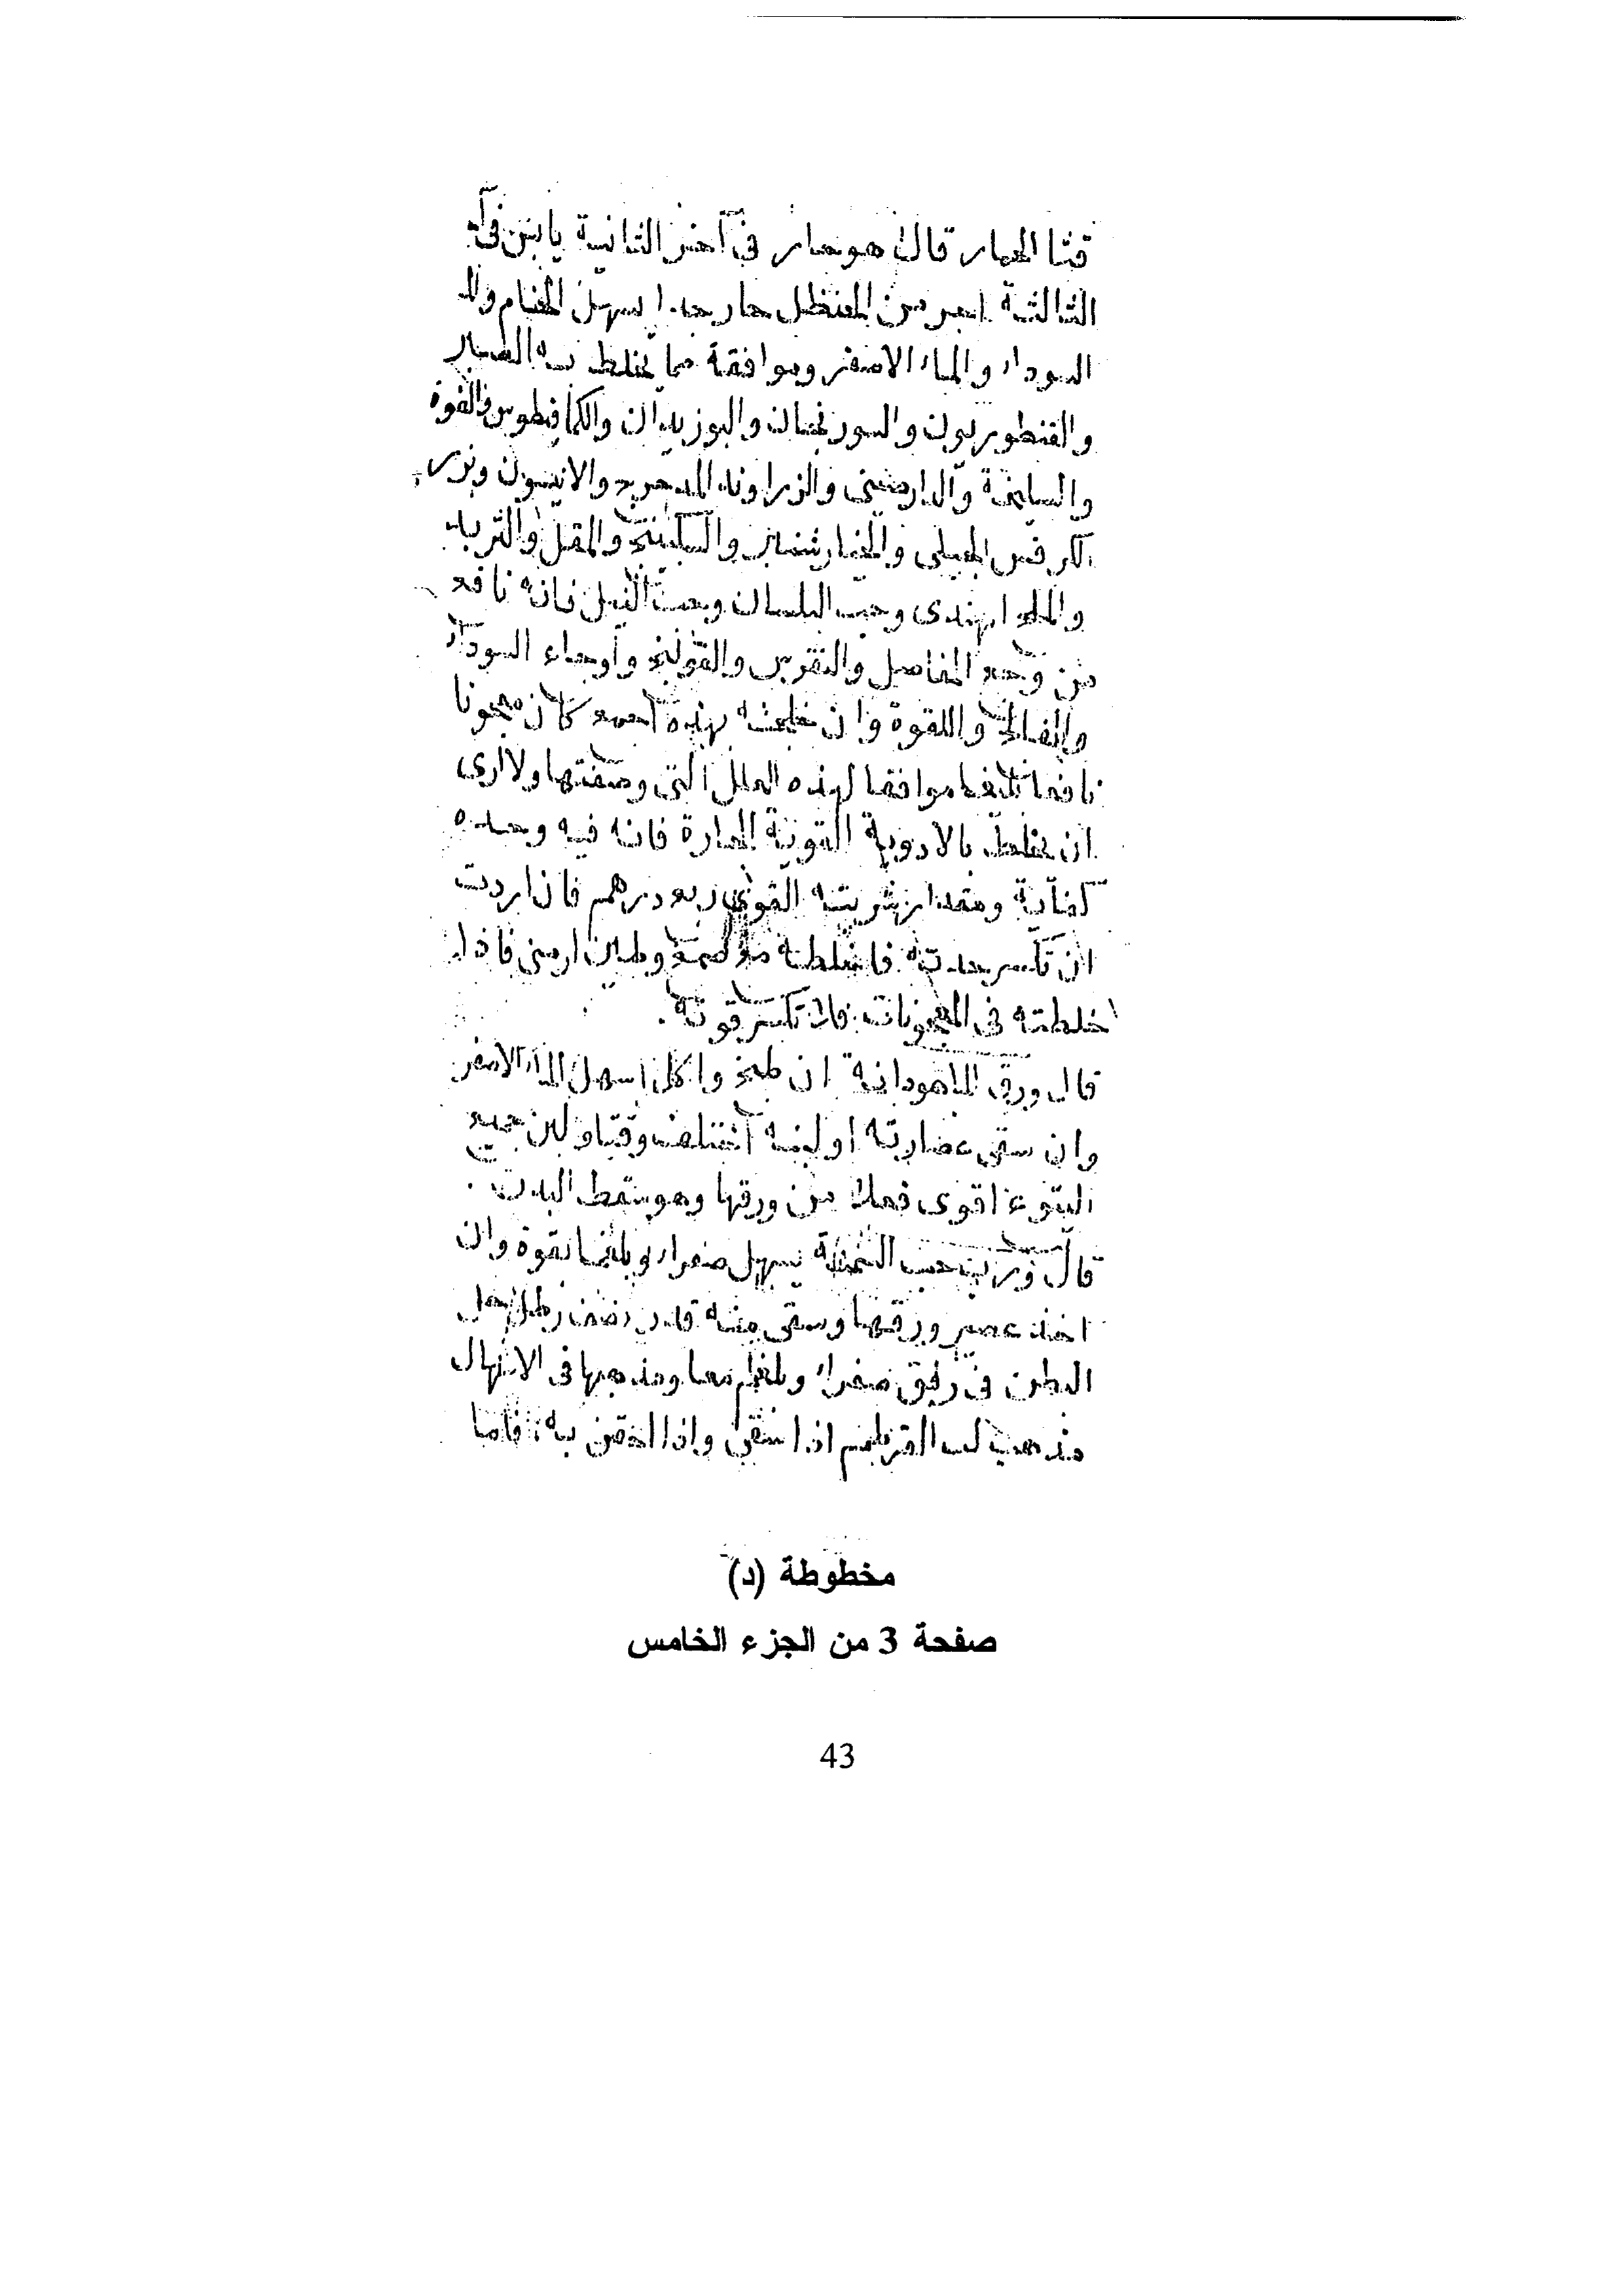 قثا الحمار قال هو حار فى آخر الثانية يابس فى
الثالثة من الحنظل حار جدا يسهل الخام و
السوداء والماء الاصفر وموافقة مما يخلط به الصبر
والقنطوريون والسورنجان والبوزيدان والكمافيطوس والفوة
والسليخة والدارصينى والزراوند المدحرج والانيسون وبزر
الكرفس الجبلى والخيارشنبر والسكبينج والمقل والتربد
والملح الهندى وحب البلسان وحب النيل فانه نافع
من وجع المفاصل والنقرس والقولنج واوجاع السوداء
والفالج واللقوة وان خلطته بهذه اجمع كان معجونا
نافعا موافقا لهذه العلل التى وصفتها ولا ارى
ان يخلط بالادوية القوية الحارة فانه فيه وحده
كفاية ومقدار شربته القوى ربع درهم فان اردت
ان تكسر حدته فاخلطه وطين ارمنى فاذا
خلطته فى المعجونات فلا تكسر قوته
قال ورق الماهودانه ان طبخ واكل اسهل الماء الاصفر
وان سقى عصارته او لبنه وقيأ ولبن جميع
اليتوع اقوى فعلا من ورقها وهو يسقط البدن
قال حب يسهل صفراء وبلغما بقوة وان
اخذ عصير ورقها وسقى منه قدر نصف رطل حل
البطن فى رفق صفراء وبلغم معا ومذهبها فى الاسهال
مذهب لب القرطم اذا سقى واذا احتقن به فاما
مخطوطة (د)
صفحة 3 من الجزء الخامس
43